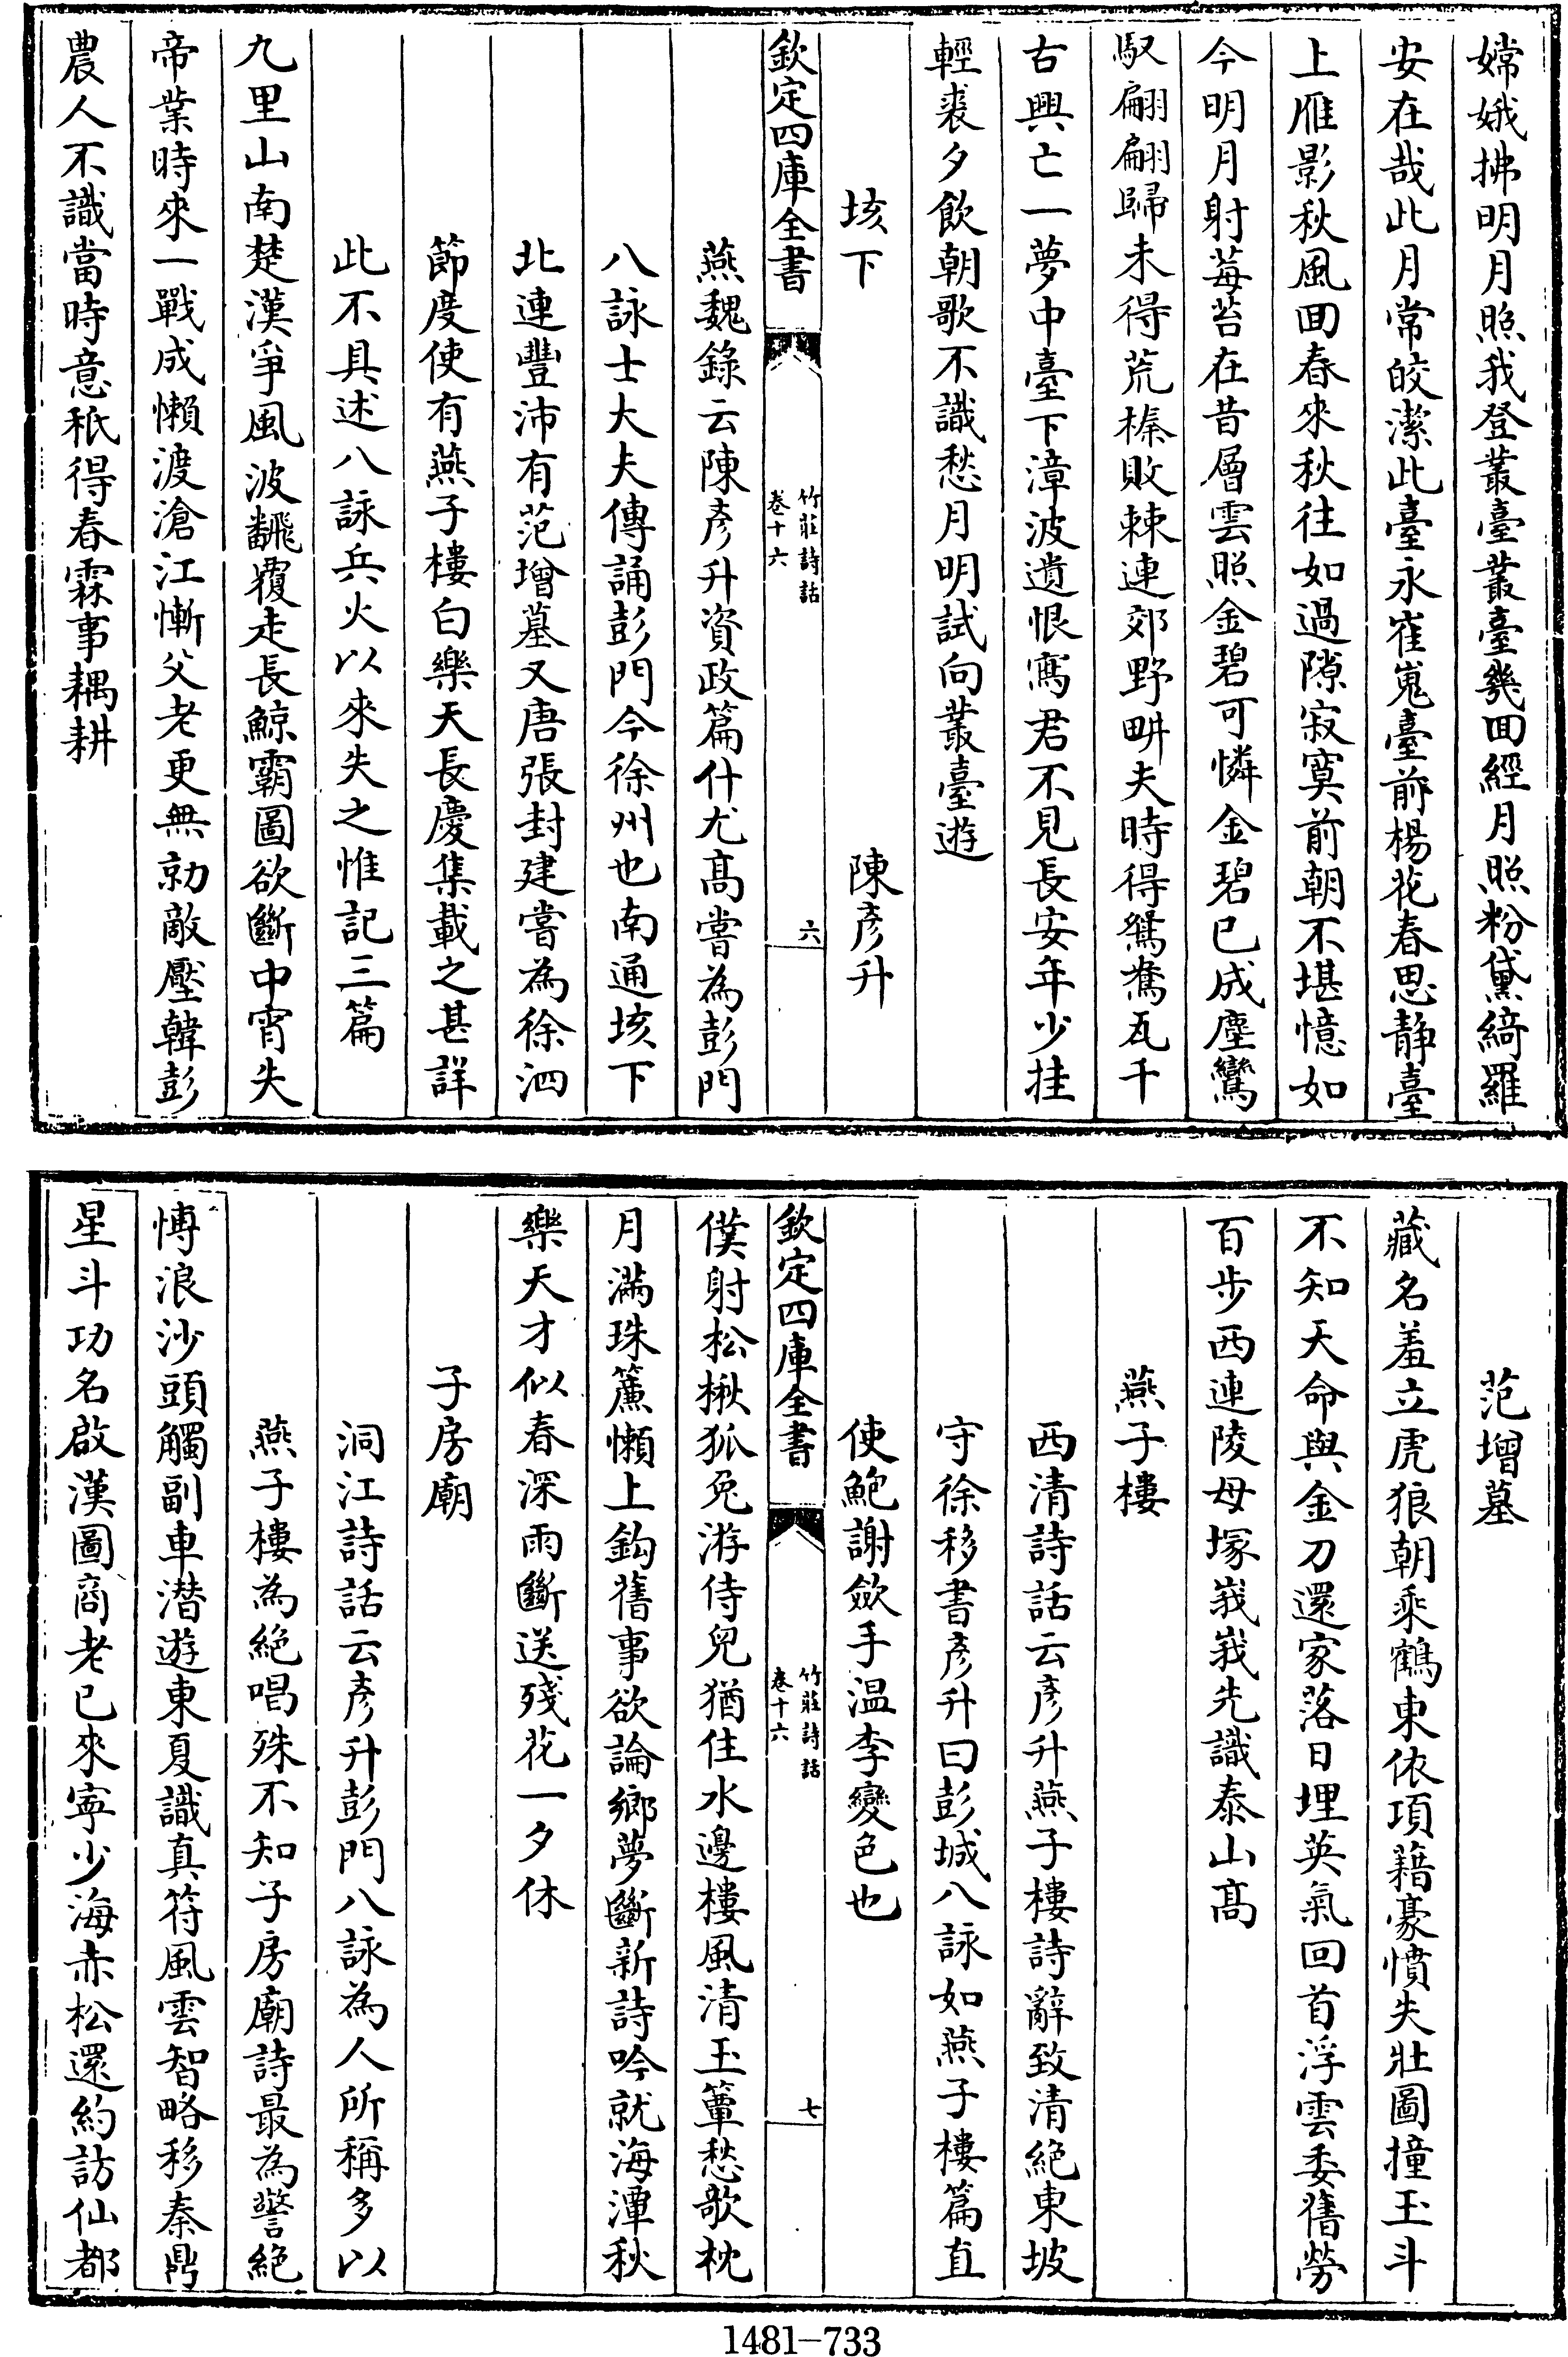 嫦娥拂明月照我登叢臺叢臺幾回經月照粉黛綺羅
安在哉此月常皎潔此臺永崔嵬臺前楊花春思静臺
上雁影秋風回春來秋往如過隙寂寞前朝不堪憶如
今明月射莓苔在昔層雲照金碧可憐金碧已成塵鸞
馭翩翩歸未得荒榛敗棘連郊野畊夫時得鴛鴦瓦千
古興亡一夢中臺下漳波遺恨寫君不見長安年少挂
輕裘夕飲朝歌不識愁月明試向叢臺遊
垓下 陳彥升
欽定四庫全書 竹莊詩話 卷十六 六
燕魏錄云陳彥升資政篇什尤高嘗為彭門
八詠士大夫傳誦彭門今徐州也南通垓下
北連豐沛有范增墓又唐張封建嘗為徐泗
節度使有燕子樓白樂天長慶集載之甚詳
此不具述八詠兵火以來失之惟記三篇
九里山南楚漢爭風波飜覆走長鯨霸圖欲斷中宵失
帝業時來一戰成懶渡滄江慚父老更無勍敵壓韓彭
農人不識當時意秖得春霖事耦耕
范增墓
藏名羞立虎狼朝乘鶴東依項籍豪憤失壯圖撞玉斗
不知天命與金刀還家落日埋英氣回首浮雲委舊勞
百步西連陵母塚峩峩先識泰山髙
燕子樓
西清詩話云彥升燕子樓詩辭致清絕東坡
守徐移書彥升曰彭城八詠如燕子樓篇直
使鮑謝斂手温李變色也
欽定四庫全書 竹莊詩話 卷十六 七
僕射松楸狐兔游侍兒猶住水邊樓風清玉簟愁歌枕
月滿珠簾懶上鈎舊事欲論鄉夢斷新詩吟就海潭秋
樂天才似春深雨斷送殘花一夕休
子房廟
洞江詩話云彥升彭門八詠為人所稱多以
燕子樓為絕唱殊不知子房廟詩最為警絕
愽浪沙頭觸副車潛遊東夏識真符風雲智略移秦鼎
星斗功名啟漢圖商老已來寧少海赤松還約訪仙都
1481-733